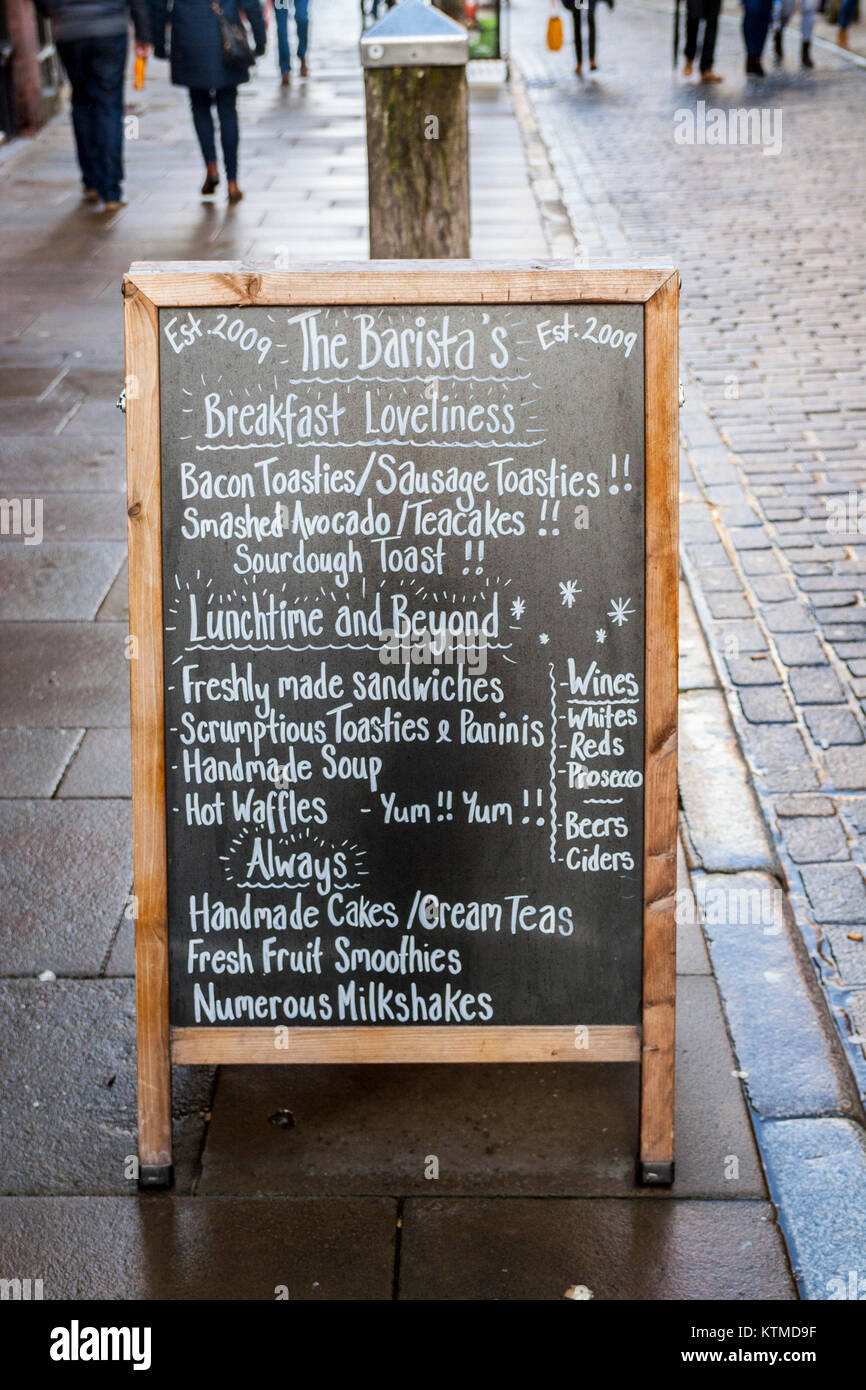 Est. 2009 The Barista's Est. 2009
Breakfast Loveliness
Bacon Toasties/Sausage Toasties !!
Smashed Avocado/Teacakes !!
Sourdough Toast !!
Lunchtime and Beyond
- Freshly made sandwiches
- Scrumptious Toasties & Paninis
- Handmade Soup
- Hot Waffles - Yum!! Yum!!
- Wines
- Whites
- Reds
- Prosecco
- Beers
- Ciders
Always
Handmade Cakes /Cream Teas
Fresh Fruit Smoothies
Numerous Milkshakes
alamy stock photo
KTMD9F
www.alamy.com